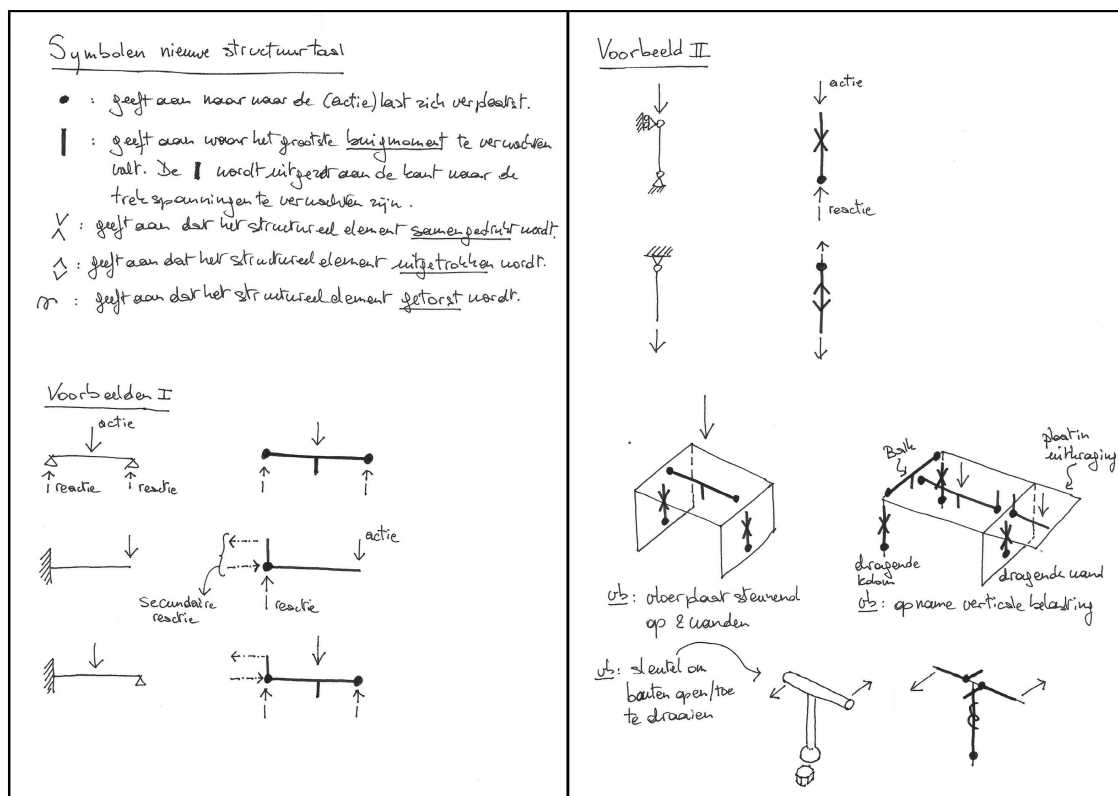 Symbolen nieuwe structuurtaal
● : geeft aan naar waar de (actie) last zich verplaatst.
: geeft aan waar het grootste buigmoment te verwachten
valt. De wordt uitgezet aan de kant waar de
trekspanningen te verwachten zijn.
: geeft aan dat het structureel element samengedrukt wordt.
: geeft aan dat het structureel element uitgetrokken wordt.
: geeft aan dat het structureel element getorst wordt.
Voorbeelden I
actie
reactie
reactie
actie
secundaire
reactie
reactie
Voorbeeld II
actie
reactie
Balk
plaat in
uitkraging
dragende
kolom
dragende wand
vb: vloerplaat steunend
op 2 wanden
vb: opname verticale belasting
vb: sleutel om
bouten open/toe
te draaien